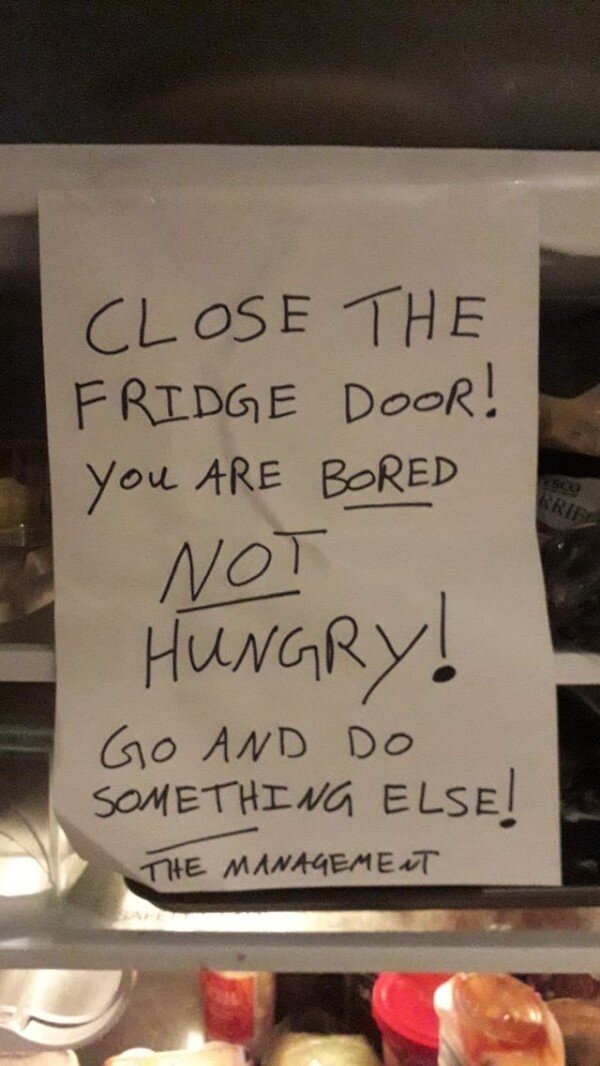 CLOSE THE
FRIDGE DOOR!
YOU ARE BORED
NOT
HUNGRY!
GO AND DO
SOMETHING ELSE!
THE MANAGEMENT